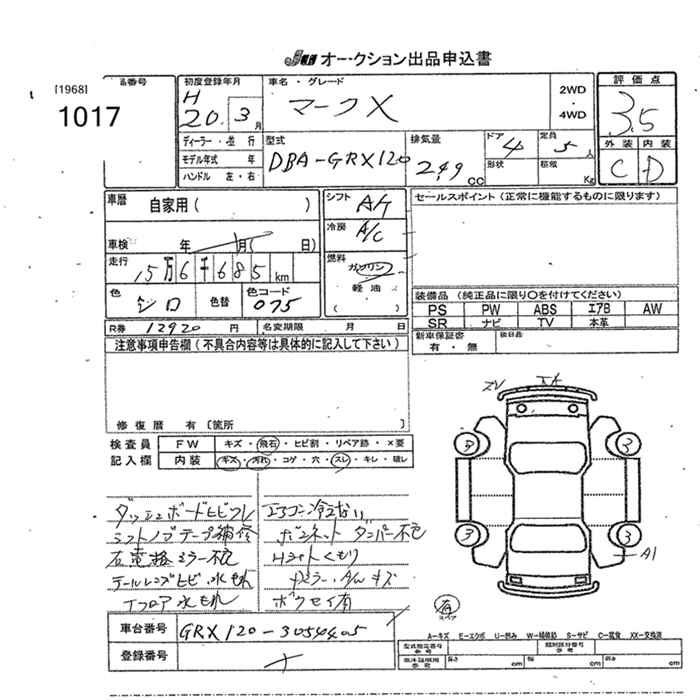 JU オークション出品申込書
[1968]
1017
品番号
初度登録年月
H
20. 3月
車名・グレード
マークX
2WD
・
4WD
評価点
3.5
外装 内装
C D
ディーラー・並行
モデル年式 年
ハンドル 左・右
型式
DBA-GRX120
排気量
249 cc
ドア
4
形状
定員
5人
積載
Kg
車歴
自家用( )
車検 年 月( 日)
走行
15万6千685km
色
シロ
色替
色コード
075
シフト
A/T
冷房
A/C
燃料
ガソリン
軽油
( )
セールスポイント(正常に機能するものに限ります)
装備品(純正品に限り〇を付けてください)
PS PW ABS エアB AW
SR ナビ TV 本革
新車保証書
有・無
後日品
R券 12920円
名変期限 月 日
注意事項申告欄(不具合内容等は具体的に記入して下さい)
修復歴 有〔箇所 〕
検査員
記入欄
FW キズ・飛石・ヒビ割・リペア跡・×要
内装 キズ・汚れ・コゲ・穴・スレ・キレ・破レ
ダッシュボードヒビワレ
シフトノブテープ補修
右電格ミラー不良
テールレンズヒビ・水もれ
Tフロア水もれ
エアコン冷えない
ボンネットダンパー不良
Hライトくもり
ドアミラー・A/Wキズ
ボウセイ有
車台番号 GRX120-3054405
登録番号
3 3
3 3
A1
有
スペア
A-キズ E-エクボ U-凹み W-補修跡 S-サビ C-腐食 XX-交換済
型式指定番号
参考
類別区分番号
参考
車体証明用
参考
長さ cm 幅 cm 高さ cm